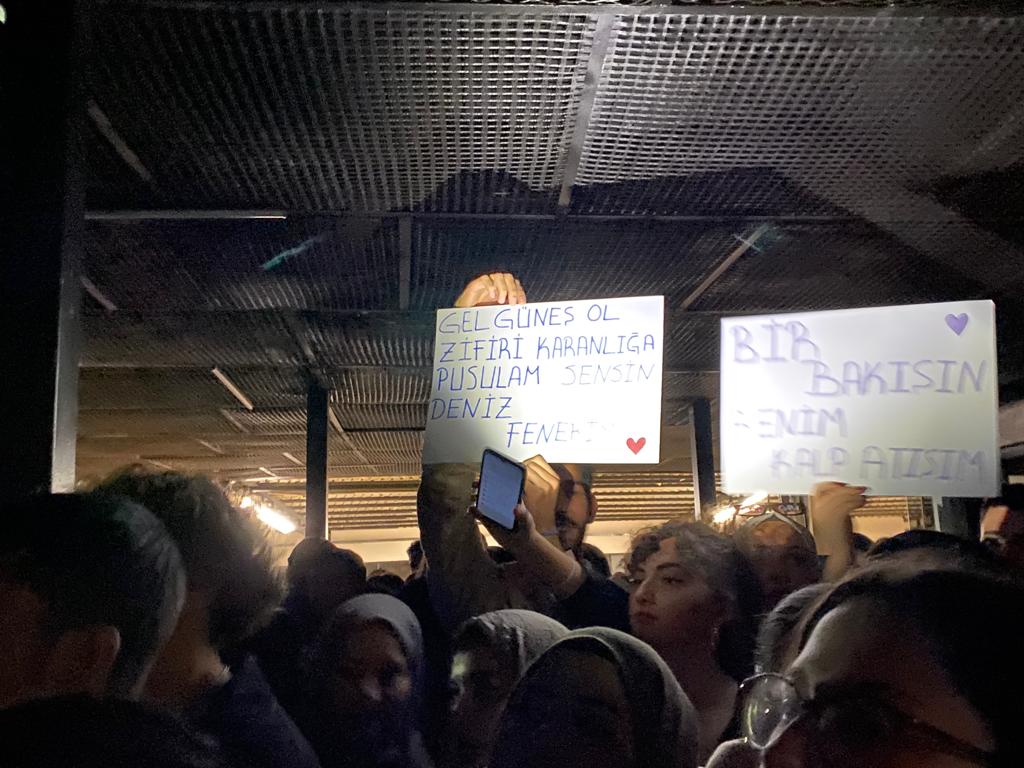 GEL GÜNEŞ OL
ZİFİRİ KARANLIĞA
PUSULAM SENSİN
DENİZ
BİR
BAKIŞIN
BENİM
KALP ATIŞIM